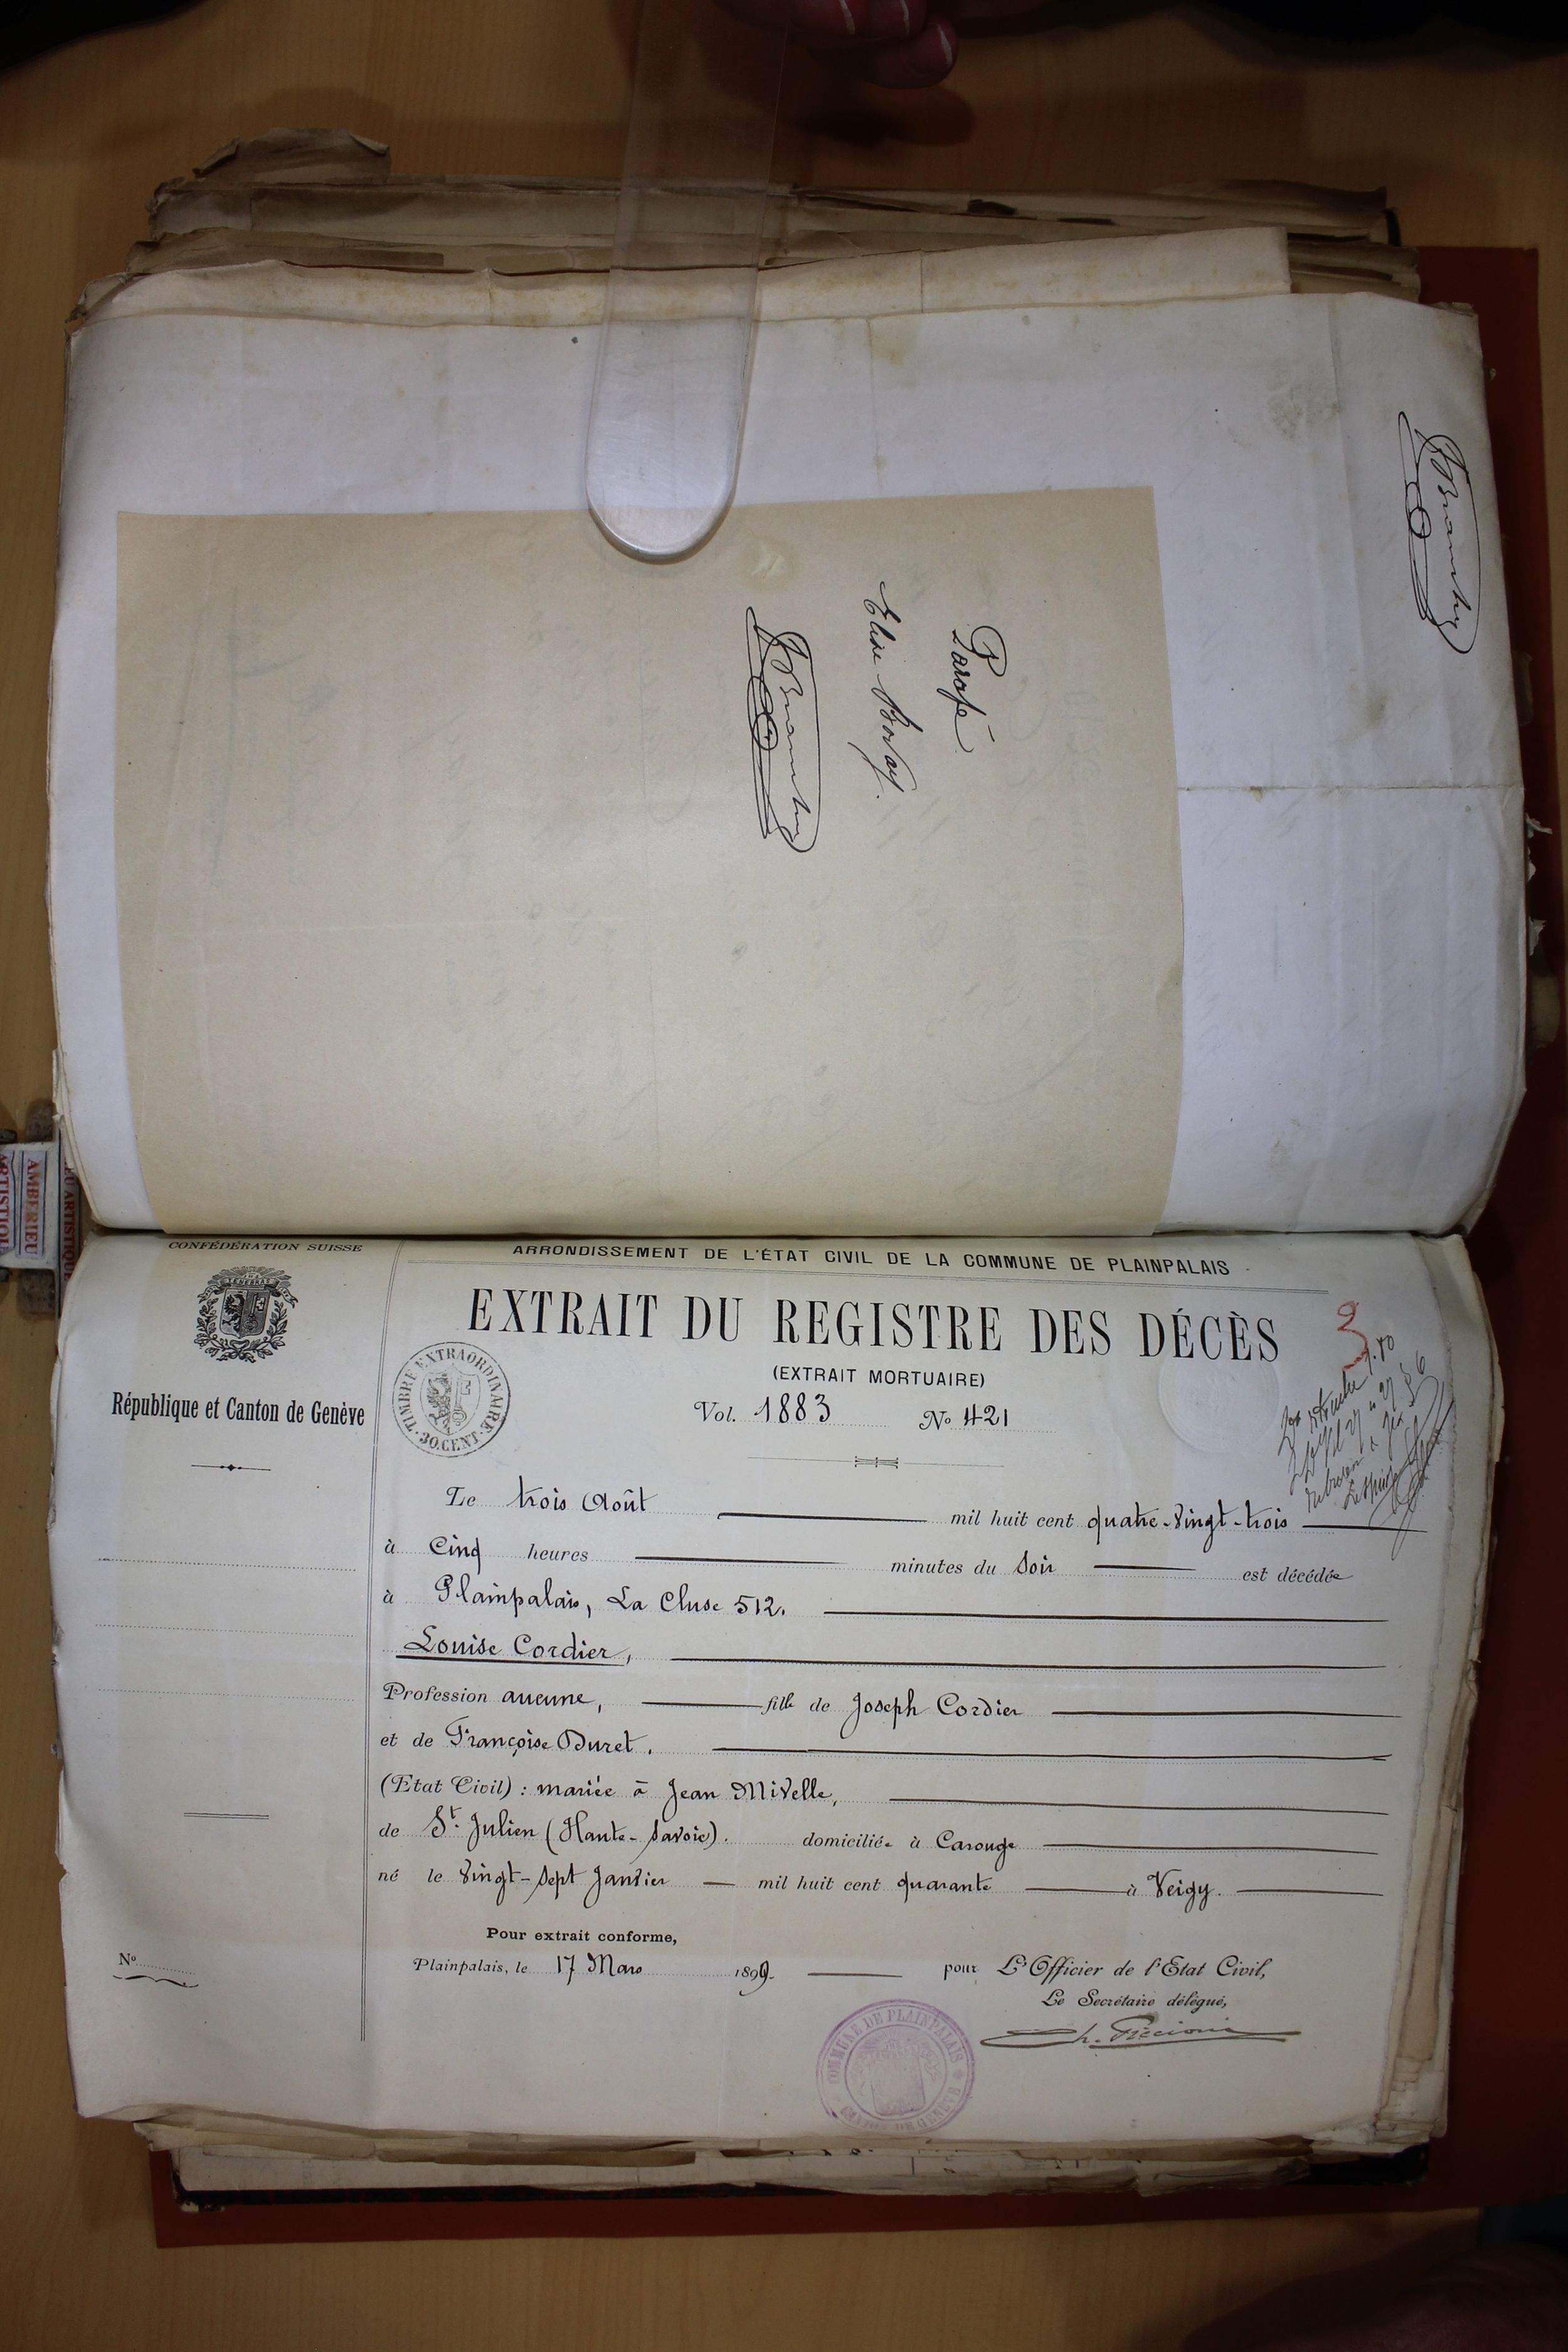 Parafé
Elise Bovay.
CONFÉDÉRATION SUISSE
République et Canton de Genève
No
ARRONDISSEMENT DE L'ÉTAT CIVIL DE LA COMMUNE DE PLAINPALAIS
EXTRAIT DU REGISTRE DES DÉCÈS
(EXTRAIT MORTUAIRE)
Vol. 1883 No 421
TIMBRE EXTRAORDINAIRE
30.CENT.
3
Le trois Août mil huit cent quatre-vingt-trois
à Cinq heures minutes du soir est décédée
à Plainpalais, La Cluse 512.
Louise Cordier,
Profession aucune, fille de Joseph Cordier
et de Françoise Duret.
(Etat Civil) : mariée à Jean Mivelle,
de St. Julien (Haute-Savoie). domiciliée à Carouge
né le vingt-sept Janvier mil huit cent quarante à Veigy.
Pour extrait conforme,
Plainpalais, le 17 Mars 1899. pour L'Officier de l'Etat Civil,
Le Secrétaire délégué,
Ch. Piccioni
COMMUNE DE PLAINPALAIS
CANTON DE GENÈVE
AMBERIEU